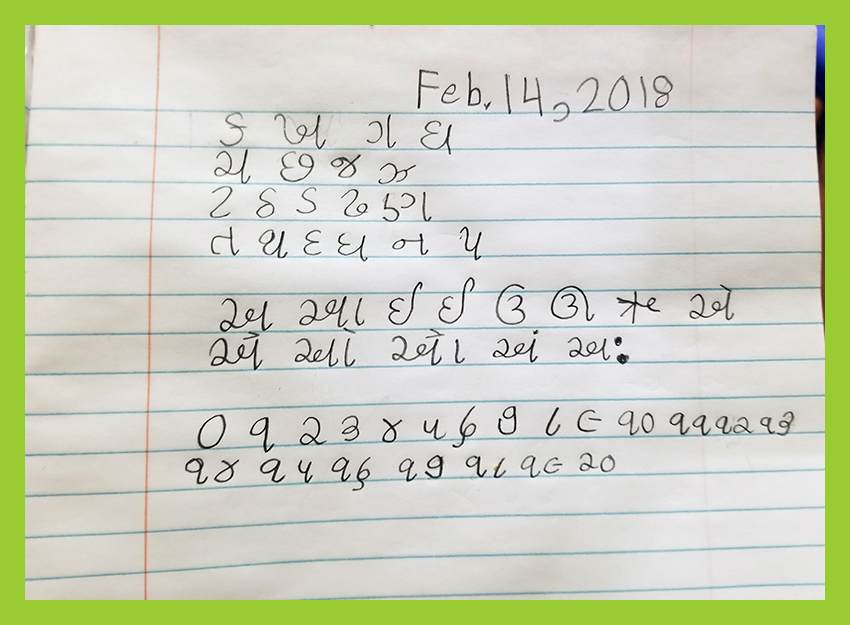 Feb. 14, 2018
ક ખ ગ ઘ
ચ છ જ ઝ
ટ ઠ ડ ઢ ણ
ત થ દ ધ ન પ
અ આ ઇ ઈ ઉ ઊ ઋ એ
ઐ ઓ ઔ અં અઃ
૦ ૧ ૨ ૩ ૪ ૫ ૬ ૭ ૮ ૯ ૧૦ ૧૧ ૧૨ ૧૩
૧૪ ૧૫ ૧૬ ૧૭ ૧૮ ૧૯ ૨૦